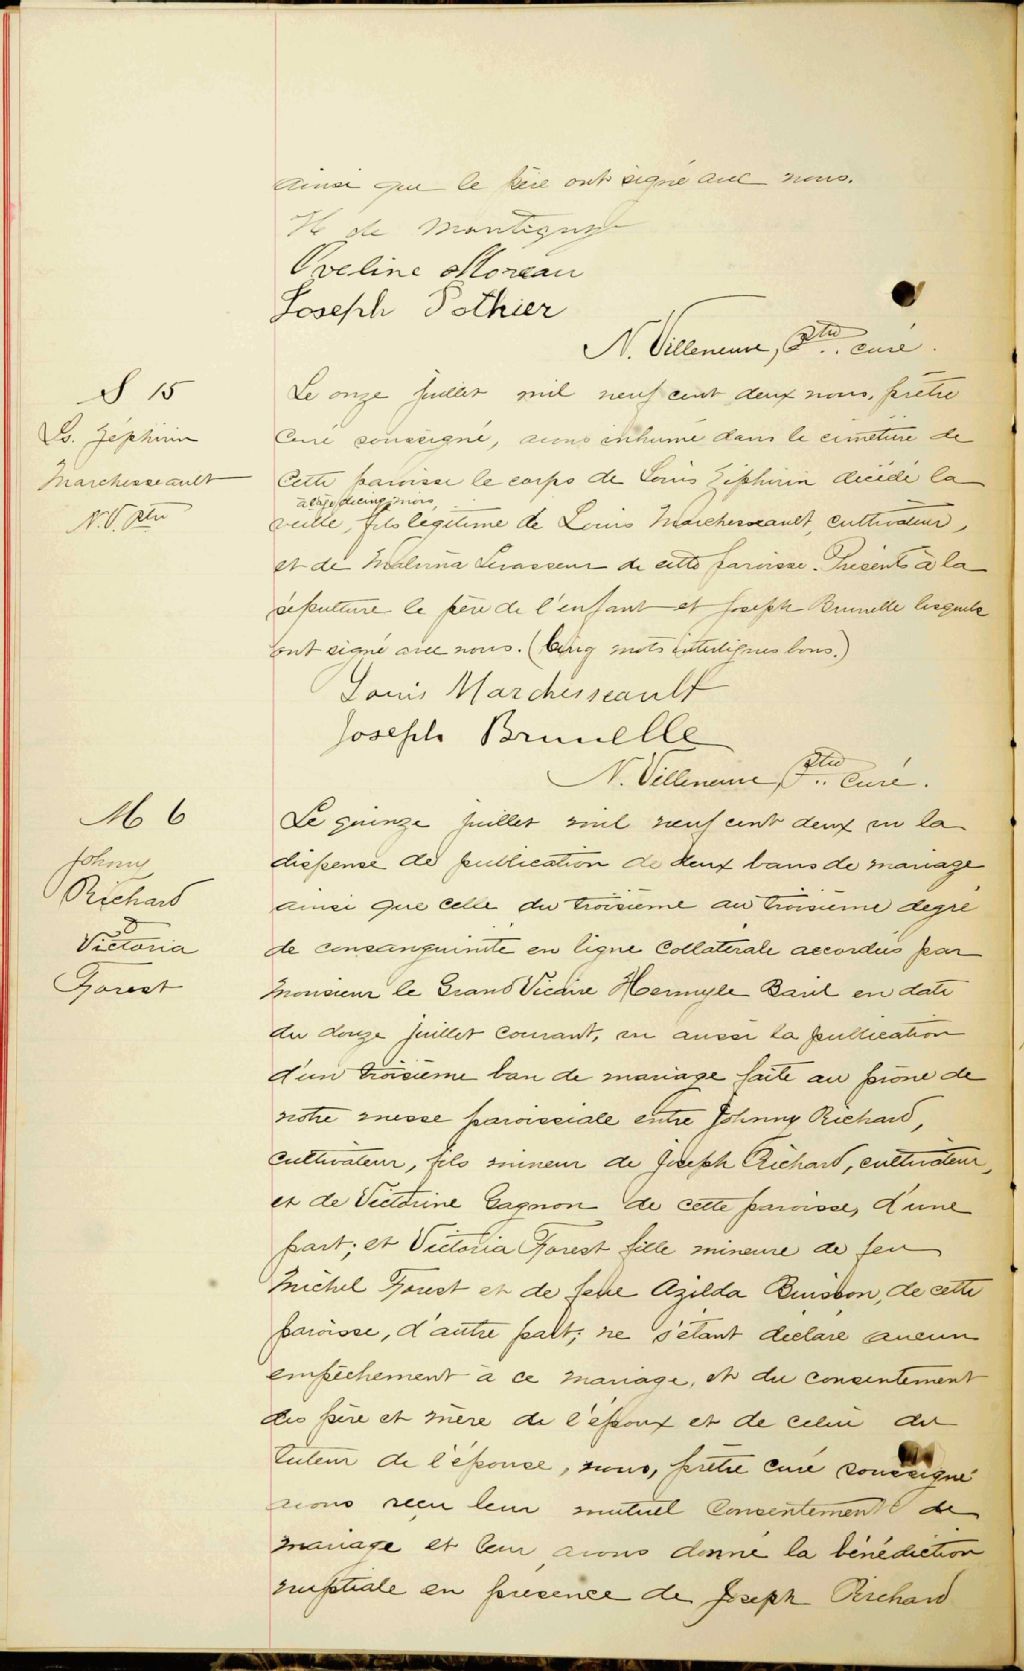 ainsi que le père ont signé avec nous.
H de Montigny
Oveline Moreau
Joseph Pothier
N. Villeneuve, Ptre curé.
S 15
Ls. Zéphirin
Marchesseault
N.V. Ptre
Le onze juillet mil neuf cent deux nous, prêtre
curé soussigné, avons inhumé dans le cimetière de
cette paroisse le corps de Louis Zéphirin décédé la
à l'âge de cinq mois
veille, fils légitime de Louis Marchesseault, cultivateur,
et de Malvina Levasseur de cette paroisse. Présents à la
sépulture le père de l'enfant et Joseph Brunelle lesquels
ont signé avec nous. (Cinq mots interlignes bons.)
Louis Marchesseault
Joseph Brunelle
N. Villeneuve, Ptre curé.
M 6
Johnny
Richard
&
Victoria
Forest
Le quinze juillet mil neuf cent deux vu la
dispense de publication de deux bans de mariage
ainsi que celle du troisième au troisième degré
de consanguinité en ligne collatérale accordés par
Monsieur le Grand Vicaire Hermyle Baril en date
du douze juillet courant, vu aussi la publication
d'un troisième ban de mariage faite au prône de
notre messe paroissiale entre Johnny Richard,
cultivateur, fils mineur de Joseph Richard, cultivateur,
et de Victorine Gagnon de cette paroisse, d'une
part; et Victoria Forest fille mineure de feu
Michel Forest et de feue Azilda Buisson, de cette
paroisse, d'autre part; ne s'étant déclaré aucun
empêchement à ce mariage, et du consentement
des père et mère de l'époux et de celui du
tuteur de l'épouse, nous, prêtre curé soussigné
avons reçu leur mutuel consentement de
mariage et leur avons donné la bénédiction
nuptiale en présence de Joseph Richard